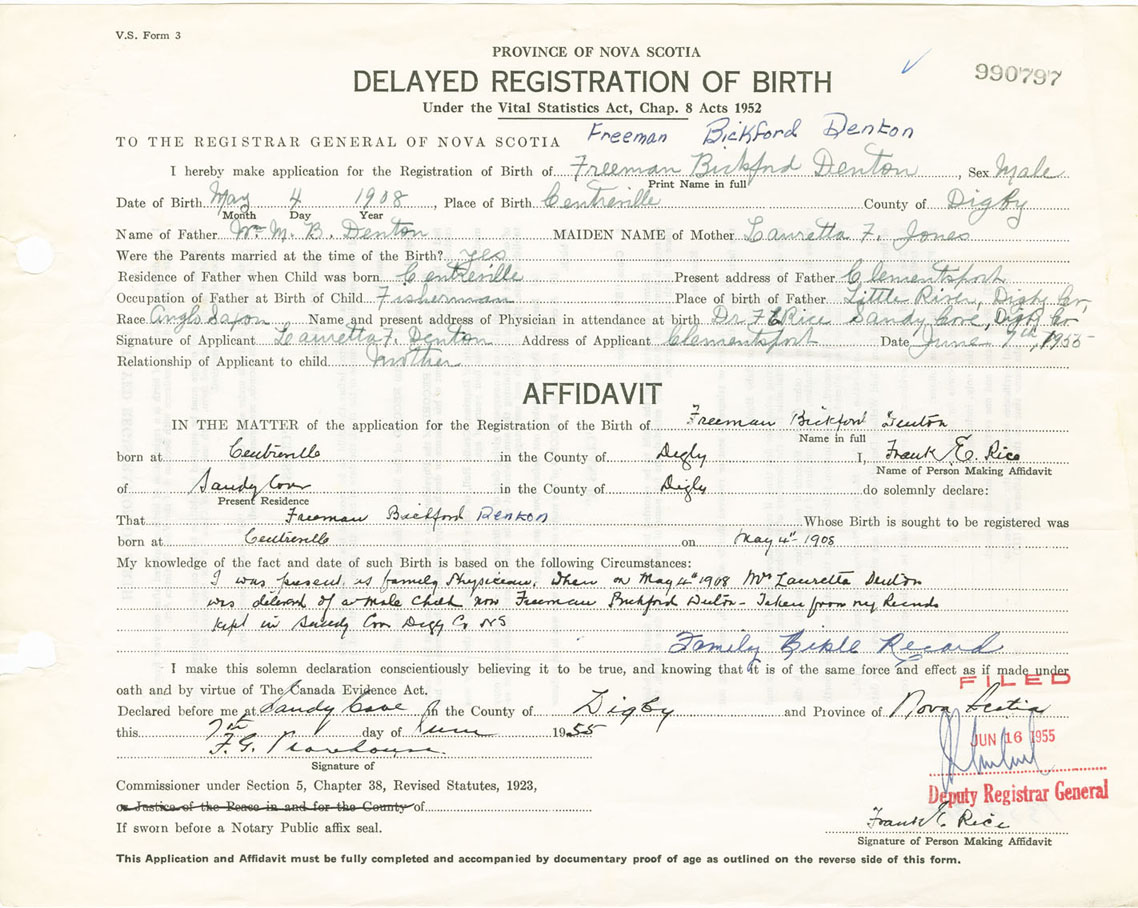 V.S. Form 3
PROVINCE OF NOVA SCOTIA
990797
DELAYED REGISTRATION OF BIRTH
Under the Vital Statistics Act, Chap. 8 Acts 1952
Freeman Bickford Denton
TO THE REGISTRAR GENERAL OF NOVA SCOTIA
I hereby make application for the Registration of Birth of Freeman Bickford Denton, Sex Male
Print Name in full
Date of Birth May 4 1908, Place of Birth Centreville County of Digby
Month Day Year
Name of Father Wm M. B. Denton MAIDEN NAME of Mother Lauretta F. Jones
Were the Parents married at the time of the Birth? yes
Residence of Father when Child was born Centreville Present address of Father Clementsport
Occupation of Father at Birth of Child Fisherman Place of birth of Father Little River, Digby Co.
Race Anglo Saxon Name and present address of Physician in attendance at birth Dr F E Rice Sandy Cove, Digby Co.
Signature of Applicant Lauretta F. Denton Address of Applicant Clementsport Date June 7th, 1955
Relationship of Applicant to child mother
AFFIDAVIT
IN THE MATTER of the application for the Registration of the Birth of Freeman Bickford Denton
Name in full
born at Centreville in the County of Digby I, Frank E. Rice
Name of Person Making Affidavit
of Sandy Cove in the County of Digby do solemnly declare:
Present Residence
That Freeman Bickford Denton Whose Birth is sought to be registered was
born at Centreville on May 4th 1908
My knowledge of the fact and date of such Birth is based on the following Circumstances:
I was present as family Physician, when on May 4th 1908 Mrs Lauretta Denton
was delivered of a male child now Freeman Bickford Denton - Taken from my Records
kept in Sandy Cove Digby Co NS
Family Bible Record
I make this solemn declaration conscientiously believing it to be true, and knowing that it is of the same force and effect as if made under
oath and by virtue of The Canada Evidence Act.
FILED
Declared before me at Sandy Cove in the County of Digby and Province of Nova Scotia
this 7th day of June 1955
JUN 16 1955
F. G.
Signature of
Commissioner under Section 5, Chapter 38, Revised Statutes, 1923,
Deputy Registrar General
or Justice of the Peace in and for the County of
Frank E. Rice
If sworn before a Notary Public affix seal.
Signature of Person Making Affidavit
This Application and Affidavit must be fully completed and accompanied by documentary proof of age as outlined on the reverse side of this form.